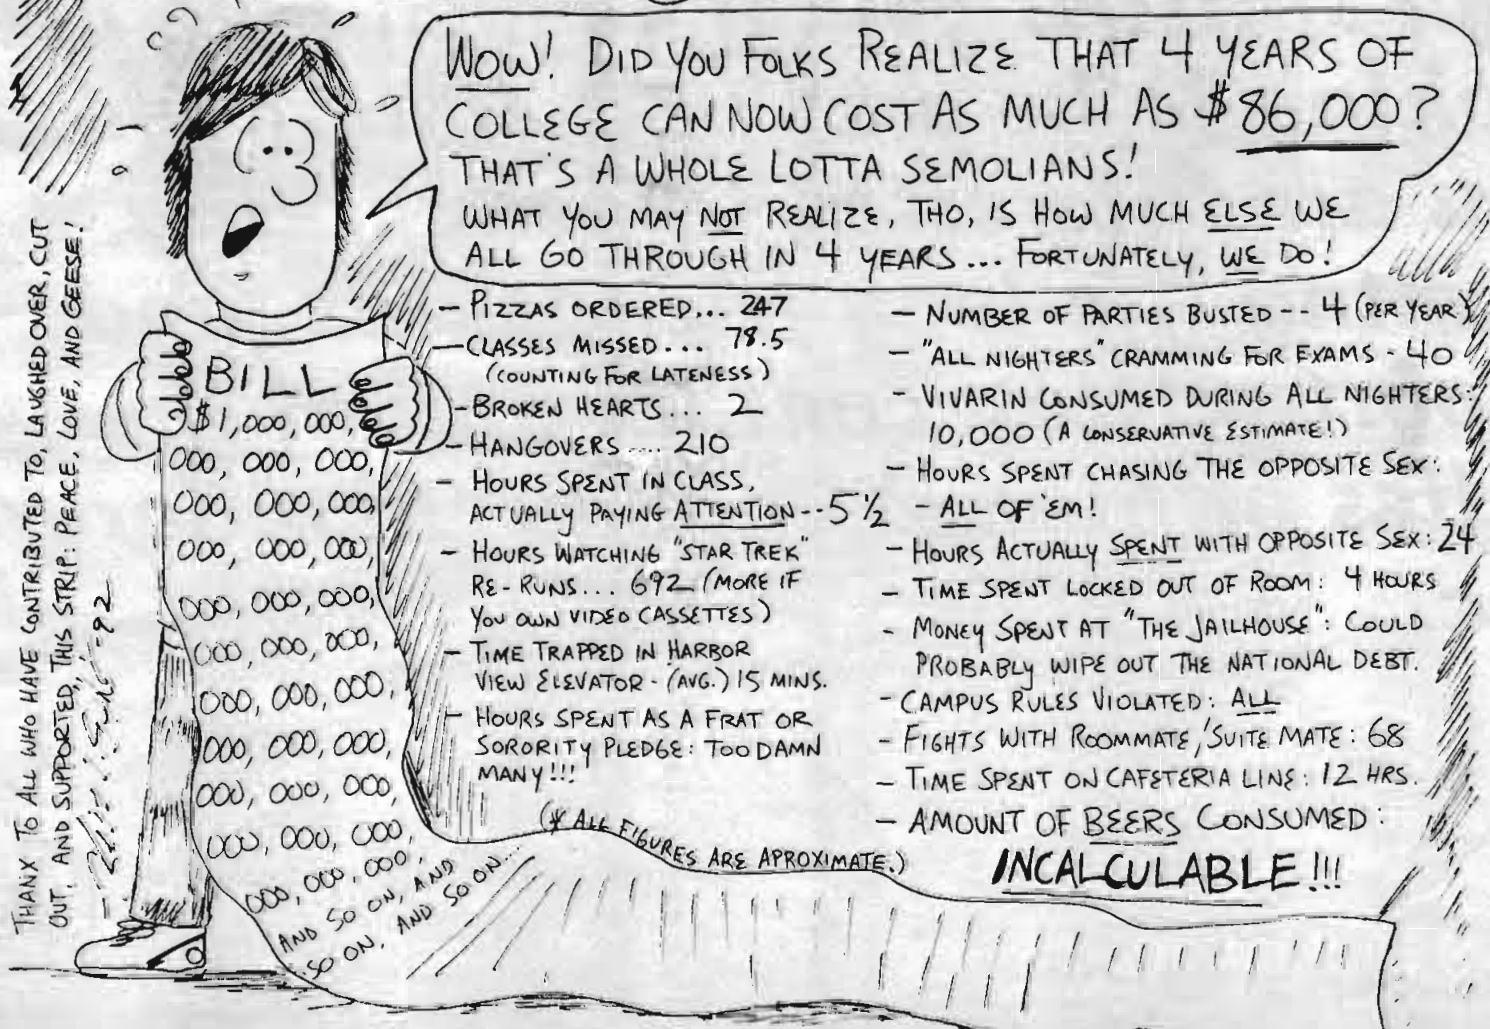 WOW! DID YOU FOLKS REALIZE THAT 4 YEARS OF
COLLEGE CAN NOW COST AS MUCH AS $86,000?
THAT'S A WHOLE LOTTA SEMOLIANS!
WHAT YOU MAY NOT REALIZE, THO, IS HOW MUCH ELSE WE
ALL GO THROUGH IN 4 YEARS... FORTUNATELY, WE DO!
BILL
$1,000,000,
000, 000, 000,
000, 000, 000,
000, 000, 000,
000, 000, 000,
000, 000, 000,
000, 000, 000,
000, 000, 000,
000, 000, 000,
000, 000, 000,
000, 000, 000,
AND SO ON, AND
SO ON, AND SO ON...
- PIZZAS ORDERED... 247
- CLASSES MISSED... 78.5
(COUNTING FOR LATENESS)
- BROKEN HEARTS... 2
- HANGOVERS .... 210
- HOURS SPENT IN CLASS,
ACTUALLY PAYING ATTENTION -- 5 1/2
- HOURS WATCHING "STAR TREK"
RE-RUNS... 692 (MORE IF
YOU OWN VIDEO CASSETTES)
- TIME TRAPPED IN HARBOR
VIEW ELEVATOR - (AVG.) 15 MINS.
- HOURS SPENT AS A FRAT OR
SORORITY PLEDGE: TOO DAMN
MANY!!!
(* ALL FIGURES ARE APROXIMATE.)
- NUMBER OF PARTIES BUSTED -- 4 (PER YEAR)
- "ALL NIGHTERS" CRAMMING FOR EXAMS - 40
- VIVARIN CONSUMED DURING ALL NIGHTERS:
10,000 (A CONSERVATIVE ESTIMATE!)
- HOURS SPENT CHASING THE OPPOSITE SEX:
- ALL OF 'EM!
- HOURS ACTUALLY SPENT WITH OPPOSITE SEX: 24
- TIME SPENT LOCKED OUT OF ROOM: 4 HOURS
- MONEY SPENT AT "THE JAILHOUSE": COULD
PROBABLY WIPE OUT THE NATIONAL DEBT.
- CAMPUS RULES VIOLATED: ALL
- FIGHTS WITH ROOMMATE/SUITE MATE: 68
- TIME SPENT ON CAFETERIA LINE: 12 HRS.
- AMOUNT OF BEERS CONSUMED:
INCALCULABLE!!!
THANX TO ALL WHO HAVE CONTRIBUTED TO, LAUGHED OVER, CUT
OUT, AND SUPPORTED, THIS STRIP: PEACE, LOVE, AND GEESE!
-92